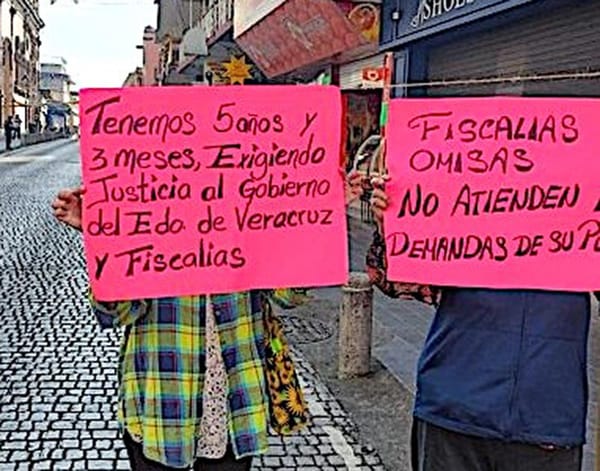 SHOES
Tenemos 5 años y
3 meses, Exigiendo
Justicia al Gobierno
del Edo. de Veracruz
y Fiscalias
FISCALIAS
OMISAS
NO ATIENDEN
DEMANDAS DE SU